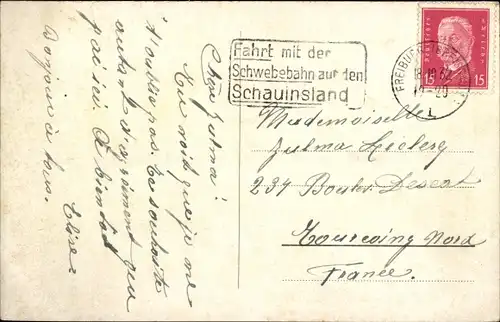 Chère Zulma!
Tu vois que je ne
t'oublie pas. Je souhaite
autant d'agrément que
j'ai ici. A bientôt
Bonjour à tous.
Elise
Fahrt mit der
Schwebebahn auf den
Schauinsland
FREIBURG
1
DEUTSCHES REICH
15 15
Mademoiselle
Zulma Leclerq
234 Boulev.
Tourcoing Nord
France.